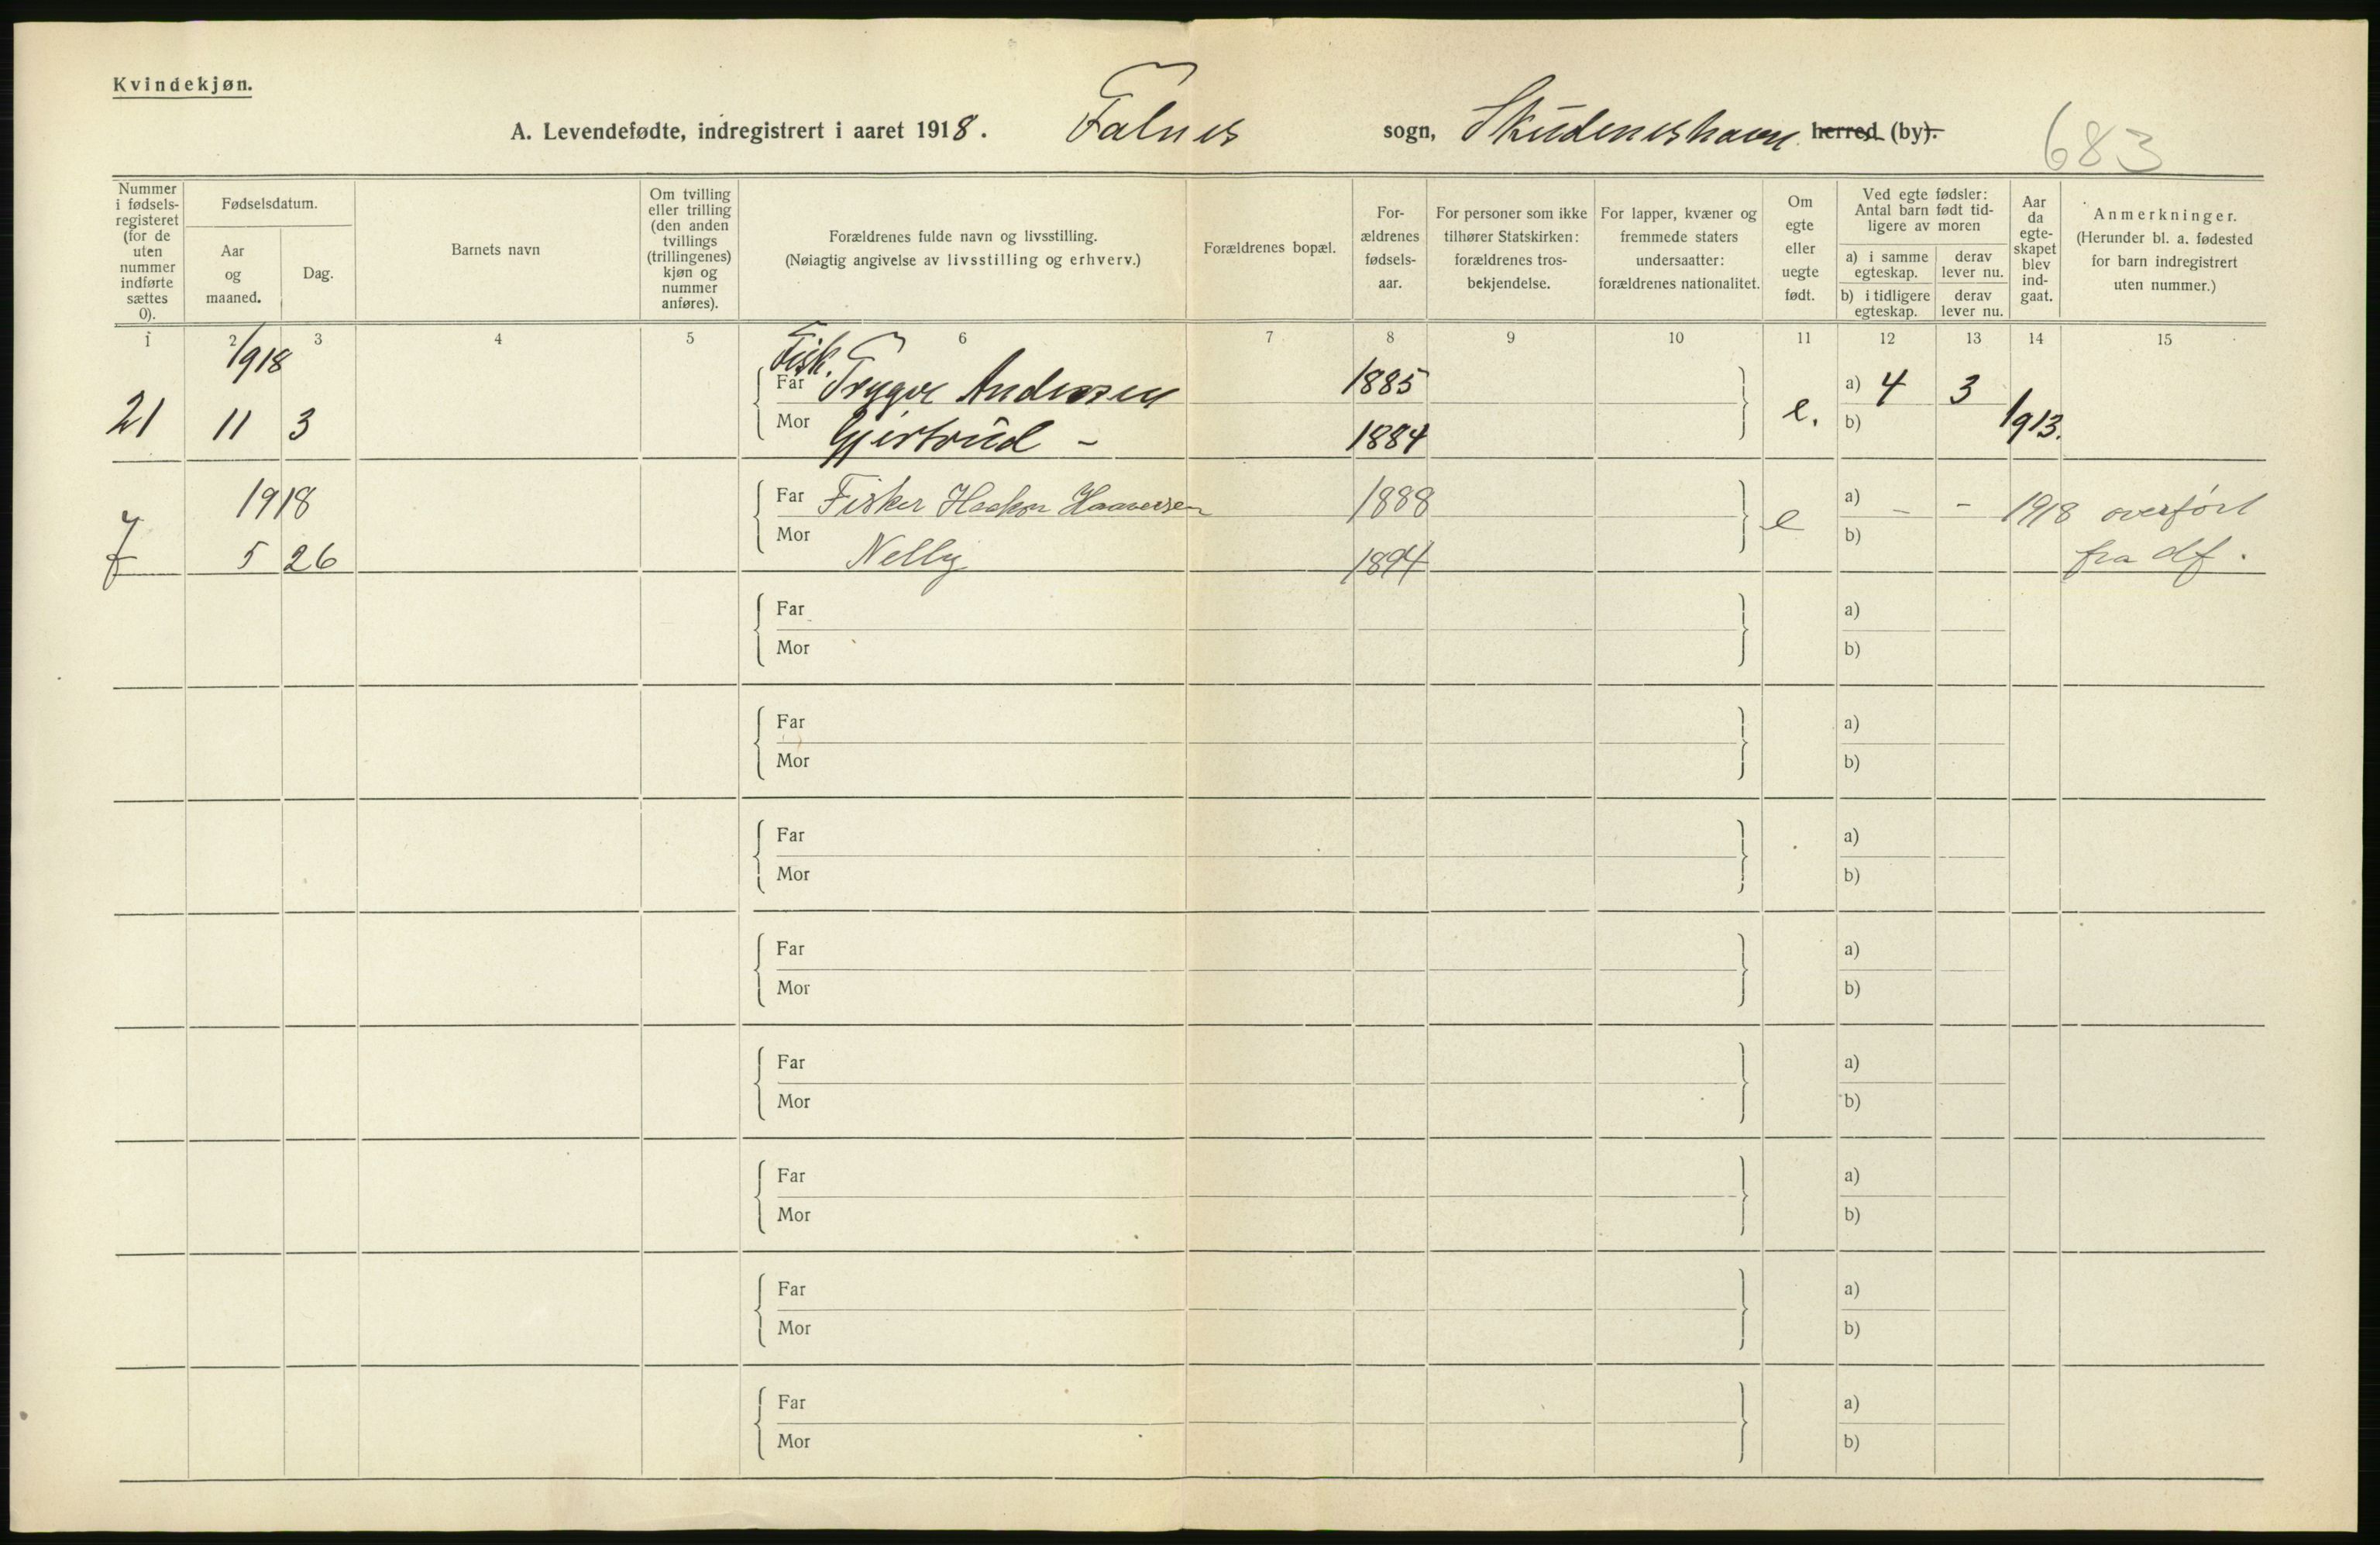 Kvindekjøn.
A. Levendefødte, indregistrert i aaret 1918. Falnes sogn, Skudeneshavn herred (by).
683
Nummer i fødsels-registeret (for de uten nummer indførte sættes 0).
Fødselsdatum.
Aar og maaned.
Dag.
Barnets navn
Om tvilling eller trilling (den anden tvillings (trillingenes) kjøn og nummer anføres).
Forældrenes fulde navn og livsstilling.
(Nøiagtig angivelse av livsstilling og erhverv.)
Forældrenes bopæl.
For-ældrenes fødsels-aar.
For personer som ikke tilhører Statskirken: forældrenes tros-bekjendelse.
For lapper, kvæner og fremmede staters undersaatter: forældrenes nationalitet.
Om egte eller uegte født.
Ved egte fødsler: Antal barn født tid-ligere av moren
a) i samme egteskap.
derav lever nu.
b) i tidligere egteskap.
derav lever nu.
Aar da egte-skapet blev ind-gaat.
Anmerkninger.
(Herunder bl. a. fødested for barn indregistrert uten nummer.)
1 2 3 4 5 6 7 8 9 10 11 12 13 14 15
1918 Fisk.
Far Trygve Andersen 1885 a) 4 3
21 11 3 Mor Gjertrud - 1884 e. b) 1913.
1918 Far Fisker Haakon Haaversen 1888 a) - - 1918 overført
7 5 26 Mor Nelly 1894 e b) fra df.
Far a)
Mor b)
Far a)
Mor b)
Far a)
Mor b)
Far a)
Mor b)
Far a)
Mor b)
Far a)
Mor b)
Far a)
Mor b)
Far a)
Mor b)